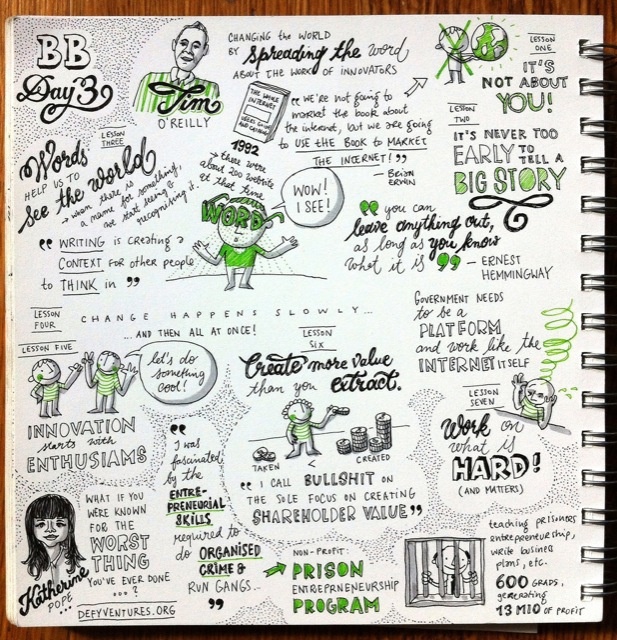 BB
Day 3
Tim
O'REILLY
CHANGING the WORLD
BY spreading the word
ABOUT THE WORK OF INNOVATORS
THE WHOLE
INTERNET
USERS GUIDE
AND CATALOG
1992
"we're not going to
market the book about
the internet, but we are going
to USE the BOOK to MARKET
THE INTERNET!"
— BRIAN
ERWIN
there were
about 200 website
at that time
LESSON
ONE
IT'S
NOT ABOUT
YOU!
LESSON
TWO
IT'S NEVER TOO
EARLY TO
TELL A
BIG STORY
LESSON
THREE
Words
HELP US TO
see the world
→ when there is
a name for something,
we start seeing &
recognising it.
WORD
WOW!
I SEE!
"WRITING is CREATING a
CONTEXT FOR other people
to THINK in"
"you can
leave anything out,
as long as you know
what it is"
— ERNEST
HEMMINGWAY
LESSON
FOUR
CHANGE HAPPENS SLOWLY...
...AND THEN ALL AT ONCE!
LESSON FIVE
let's do
something
cool!
INNOVATION
starts with
ENTHUSIAMS
LESSON
SIX
Create more value
than you extract.
TAKEN
<
CREATED
"I CALL BULLSHIT ON
THE SOLE FOCUS ON CREATING
SHAREHOLDER VALUE"
GOVERNMENT NEEDS
to be a
PLATFORM
and work like the
INTERNET ITSELF
LESSON
SEVEN
Work on
what is
HARD!
(AND MATTERS)
Katherine
POPE
WHAT IF YOU
WERE KNOWN
FOR THE
WORST
THING
YOU'VE EVER DONE
...?
DEFYVENTURES.ORG
"I was
fascinated
by the
ENTRE-
PRENEURIAL
SKILLS
required to
do ORGANISED
CRIME &
RUN GANGS...
"
NON-PROFIT:
PRISON
ENTREPRENEURSHIP
PROGRAM
teaching prisoners
entrepreneurship,
write business
plans, etc.
600 GRADS,
generating
13 MIO OF PROFIT